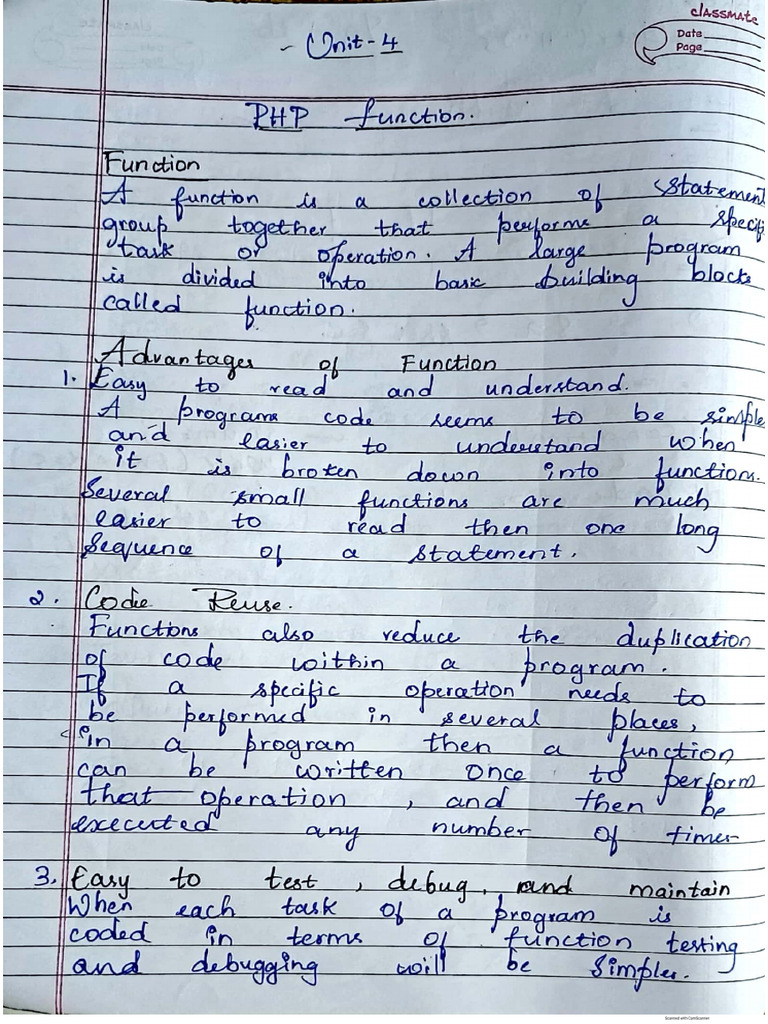 classmate
Date
Page
- Unit-4
PHP function.
Function
A function is a collection of statement
group together that performs a specifi
task or operation. A large program
is divided into basic building blocks
called function.
Advantages of Function
1. Easy to read and understand.
A programs code seems to be simple
and easier to understand when
it is broken down into function.
Several small functions are much
easier to read then one long
Sequence of a statement.
2. Code Reuse.
Functions also reduce the duplication
of code within a program.
If a specific operation needs to
be performed in several places,
in a program then a function
can be written once to perform
that operation, and then be
executed any number of times
3. Easy to test, debug. and maintain
When each task of a program is
coded in terms of function testing
and debugging will be simpler.
Scanned with CamScanner